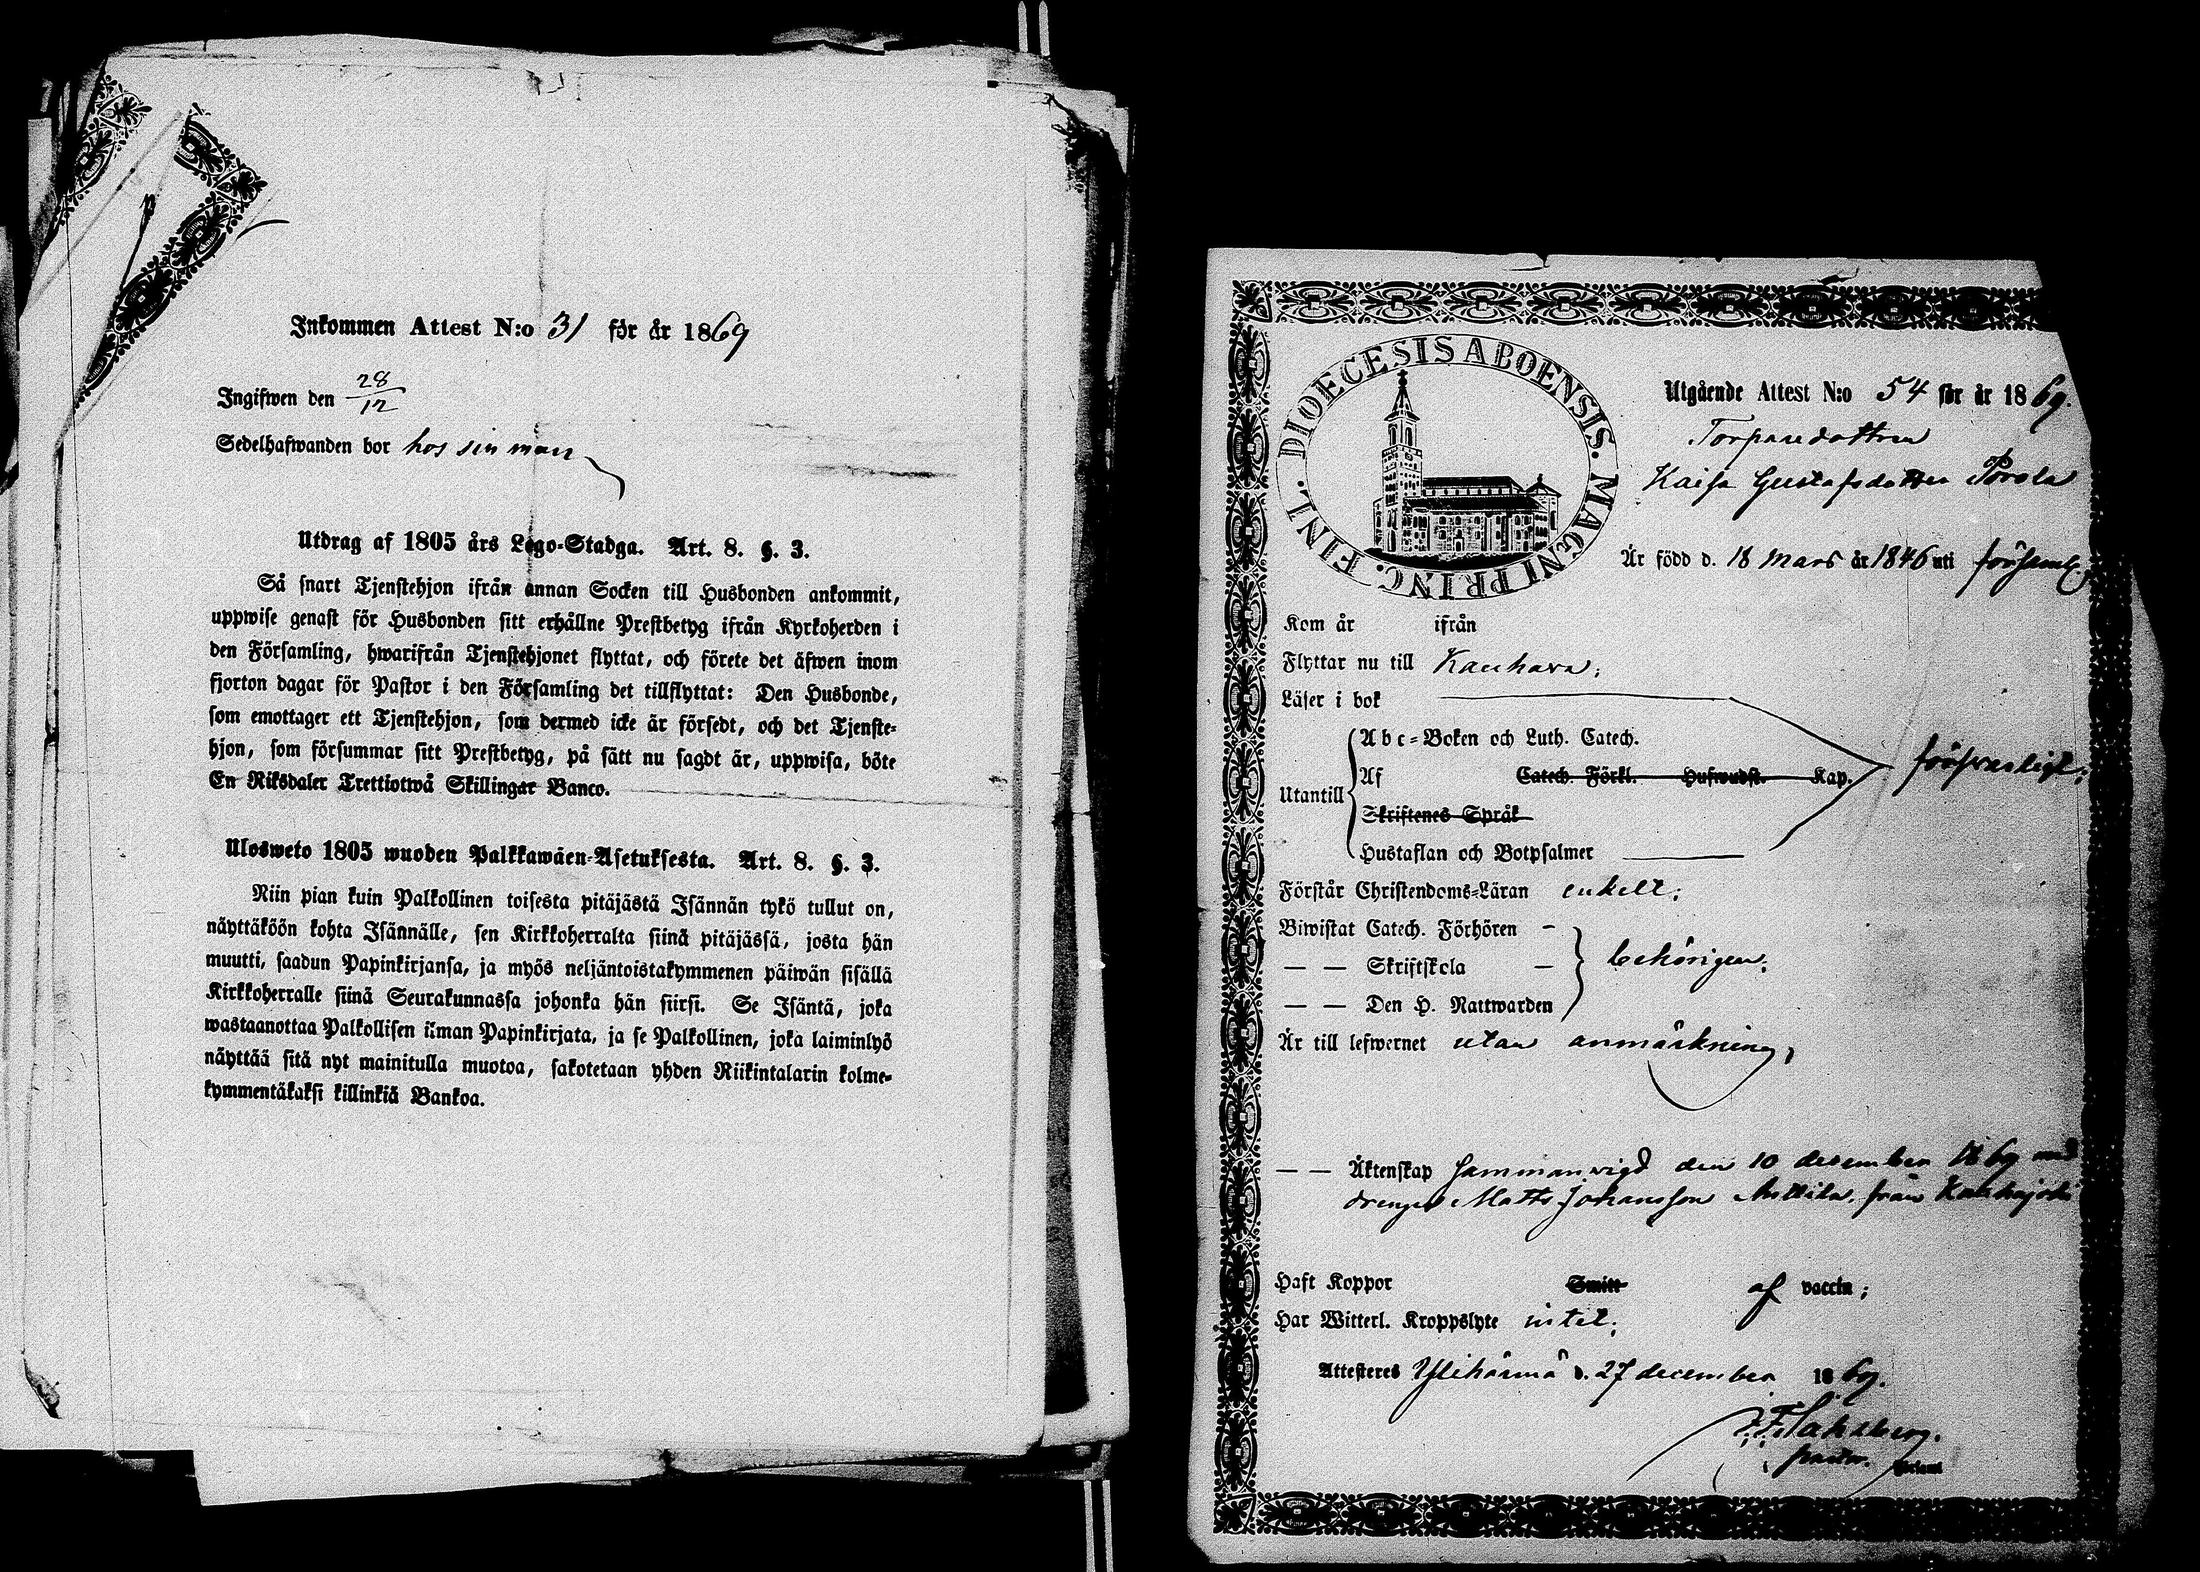 Inkommen Attest N:o 31 för år 1869
Ingifwen den 28/12
Sedelhafwanden bor hos sin man
Utdrag af 1805 års Lego-Stadga. Art. 8. §. 3.
Så snart Tjenstehjon ifrån annan Socken till Husbonden ankommit,
uppwise genast för Husbonden sitt erhållne Prestbetyg ifrån Kyrkoherden i
den Församling, hwarifrån Tjenstehjonet flyttat, och förete det äfwen inom
fjorton dagar för Pastor i den Församling det tillflyttat: Den Husbonde,
som emottager ett Tjenstehjon, som dermed icke är försedt, och det Tjenste-
hjon, som försummar sitt Prestbetyg, på sätt nu sagdt är, uppwisa, böte
En Riksdaler Trettiotwå Skillingar Banco.
Ulosweto 1805 wuoden Palkkawäen-Asetuksesta. Art. 8. §. 3.
Niin pian kuin Palkollinen toisesta pitäjästä Isännän tykö tullut on,
näyttäköön kohta Isännälle, sen Kirkkoherralta siinä pitäjässä, josta hän
muutti, saadun Papinkirjansa, ja myös neljäntoistakymmenen päiwän sisällä
Kirkkoherralle siinä Seurakunnassa johonka hän siirsi. Se Isäntä, joka
wastaanottaa Palkollisen ilman Papinkirjata, ja se Palkollinen, joka laiminlyö
näyttää sitä nyt mainitulla muotoa, sakotetaan yhden Riikintalarin kolme-
kymmentäkaksi killinkiä Bankoa.
DIOECESIS ABOENSIS. MAGNI PRINC. FINL.
Utgående Attest N:o 54 för år 1869.
Torparedottren
Kaisa Gustafsdotter Porola
Är född d. 18 Mars år 1846 uti församl.
Kom år ifrån
Flyttar nu till Kauhava;
Läser i bok
Abc-Boken och Luth. Catech.
Utantill Af Catech. Förkl. Hufwudst. Kap. försvarligt;
Skriftenes Språk
Hustaflan och Botpsalmer
Förstår Christendoms-Läran enkelt;
Biwistat Catech. Förhören –
— — Skriftskola – behörigen;
— — Den H. Nattwarden
Är till lefwernet utan anmärkning;
— — Äktenskap sammanvigd den 10 december 1869 med
drengen Matts Johansson Anttila, från
Haft Koppor Smitt af vaccin;
Har Witterl. Kroppslyte intet;
Attesteres Ylihärmä d. 27 december 1869.
pastor.